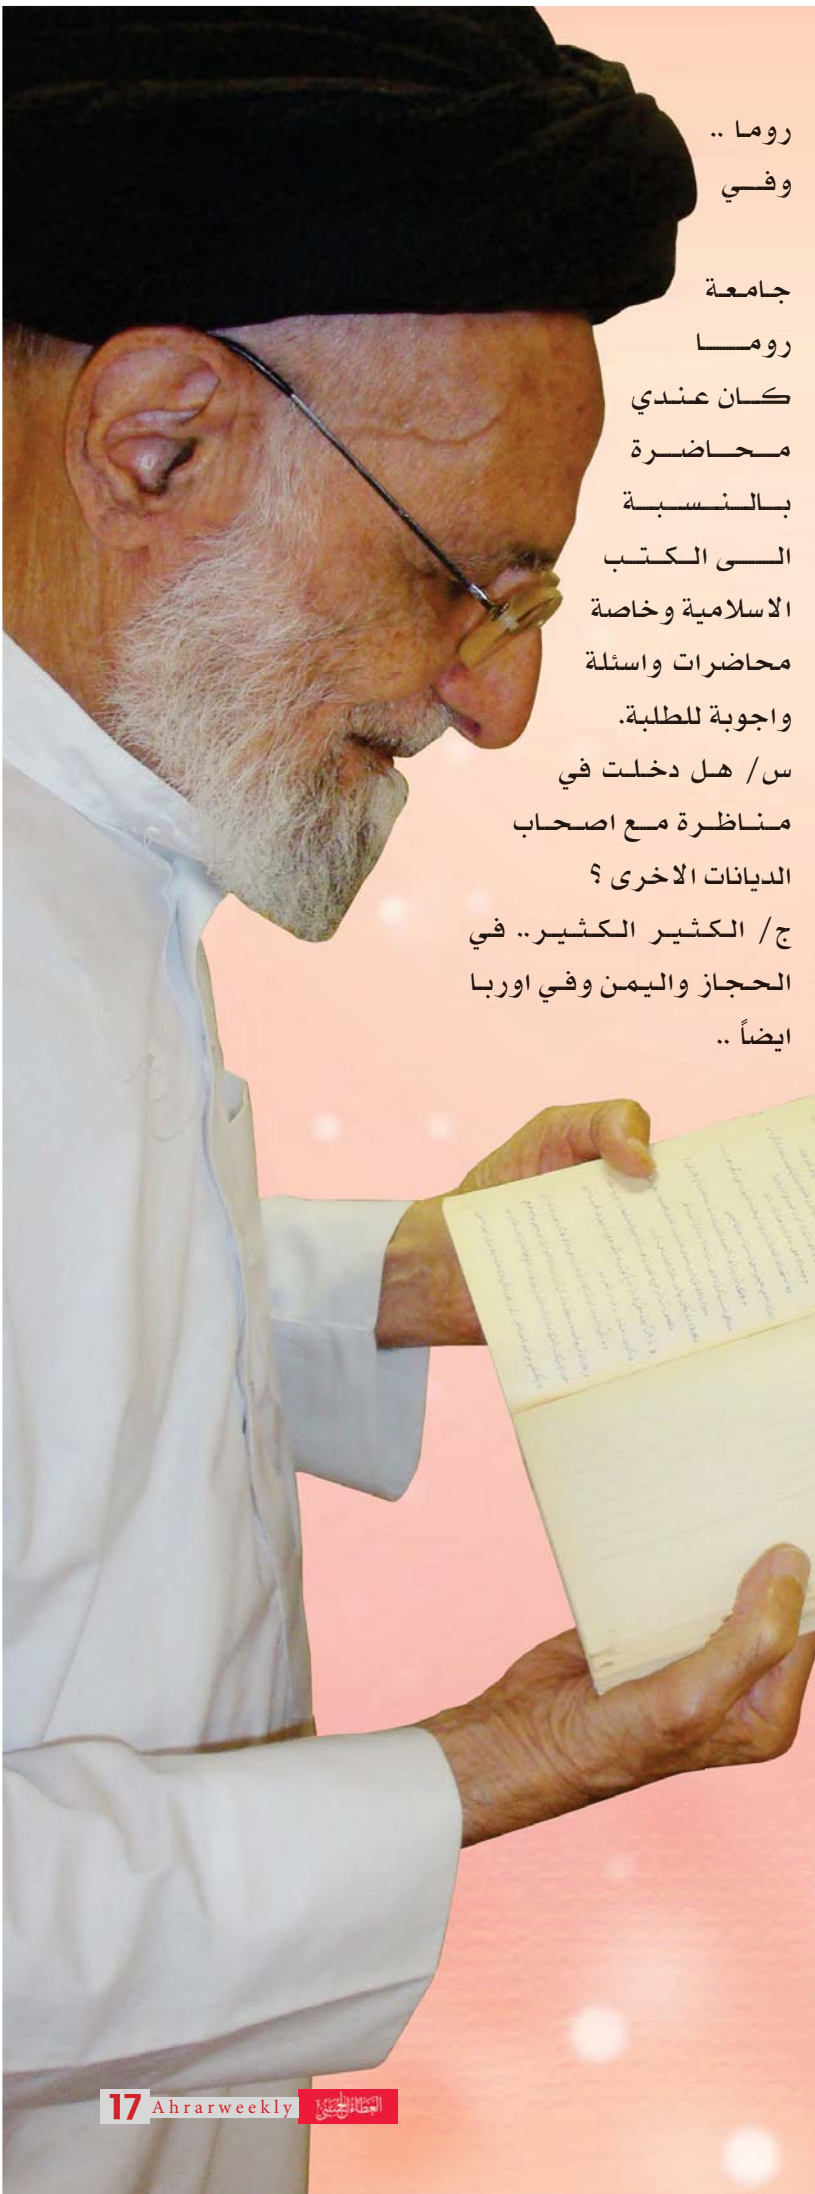 روما ..
وفي
جامعة
روما
كان عندي
محاضرة
بالنسبة
الى الكتب
الاسلامية وخاصة
محاضرات واسئلة
واجوبة للطلبة.
س/ هل دخلت في
مناظرة مع اصحاب
الديانات الاخرى ؟
ج/ الكثير الكثير.. في
الحجاز واليمن وفي اوربا
ايضاً ..
17 Ahrarweekly